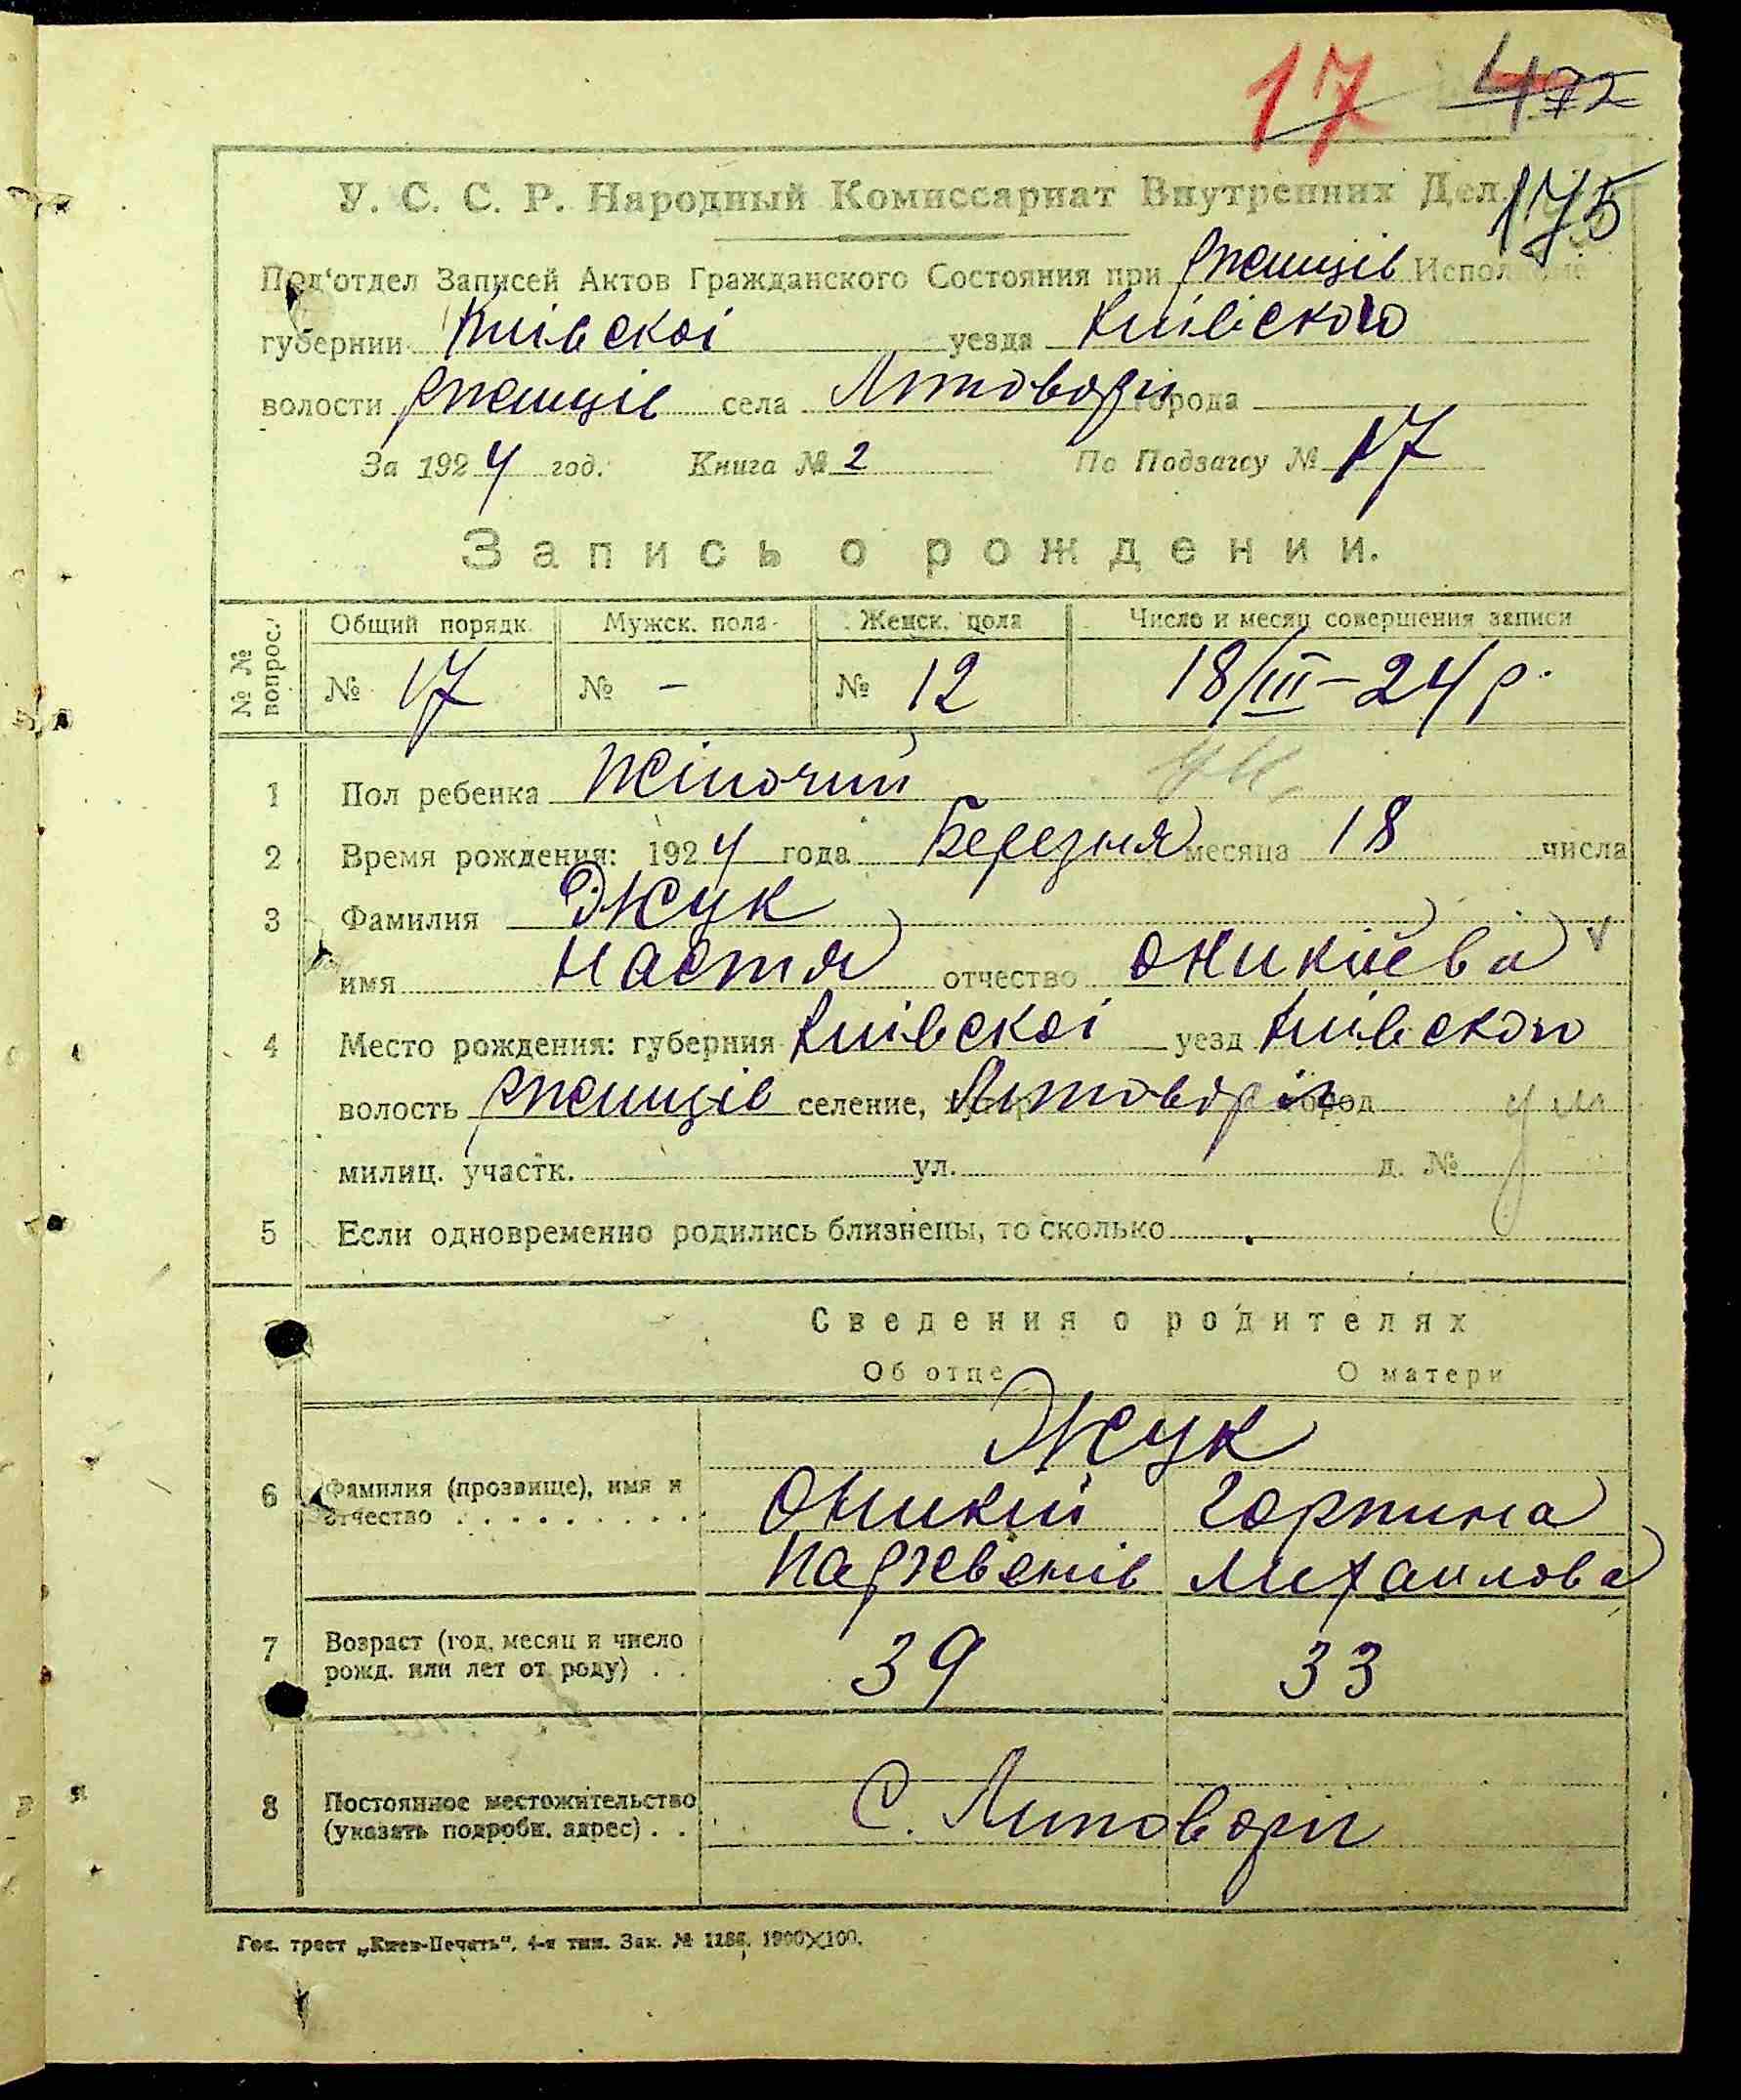 17 472
175
У. С. С. Р. Народный Комиссариат Внутренних Дел.
Под'отдел Записей Актов Гражданского Состояния при Ржищів Исполкоме
губернии Київскоі уезда Київского
волости Ржищів села Литовори города
За 1924 год. Книга № 2 По Подзагсу № 17
Запись о рождении.
№ № вопрос. Общий порядк. Мужск. пола Женск. пола Число и месяц совершения записи
№ 17 № – № 12 18/III – 24 р.
1 Пол ребенка Жіночий
2 Время рождения: 1924 года Березня месяца 18 числа
3 Фамилия Жук
имя Настя отчество Оникиева
4 Место рождения: губерния Київскоі уезд Київского
волость Ржищів селение, Литоворі город
милиц. участк. ул. д. №
5 Если одновременно родились близнецы, то сколько
Сведения о родителях
Об отце О матери
Жук
6 Фамилия (прозвище), имя и отчество Оникий Горпина
Пархвенів Михаилова
7 Возраст (год, месяц и число рожд. или лет от роду) 39 33
8 Постоянное местожительство (указать подробн. адрес) С. Литовори
Гос. трест „Киев-Печать". 4-я тип. Зак. № 1186. 1900×100.